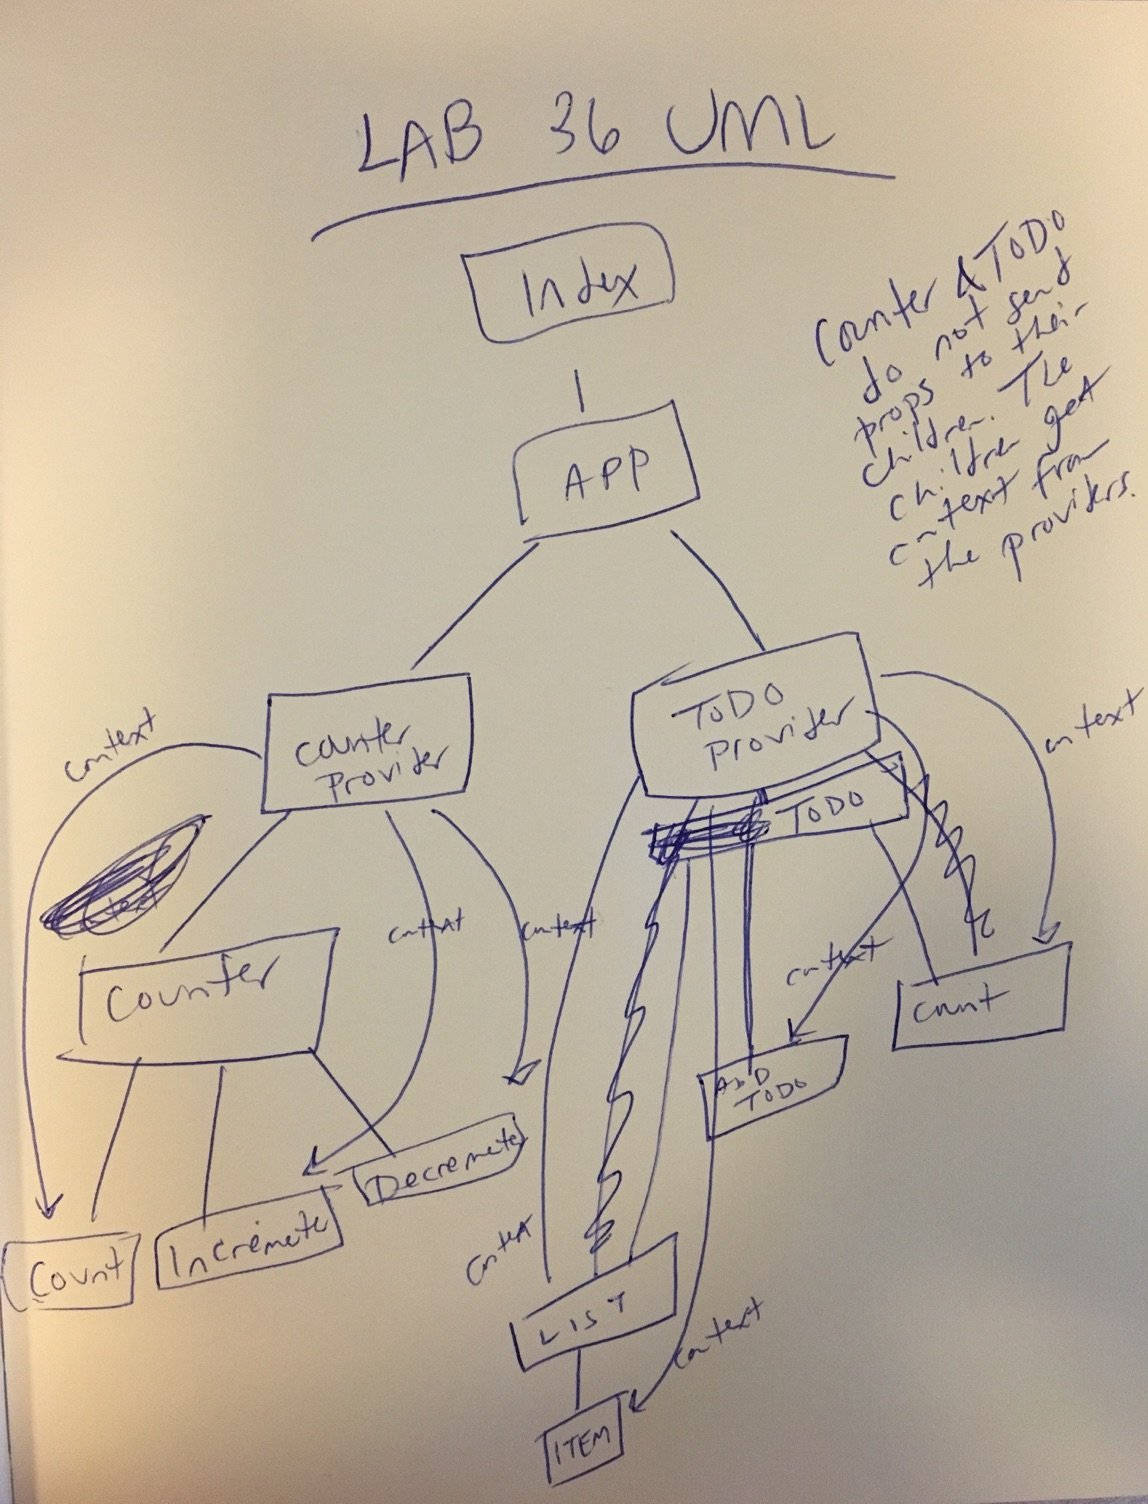 LAB 36 UML
Index
Counter & TODO
do not send
props to their
children. The
children get
context from
the providers.
APP
Counter
Provider
TODO
Provider
context
context
TODO
context
context
context
Counter
Count
ADD
TODO
Decremete
Incremete
Count
context
LIST
context
ITEM